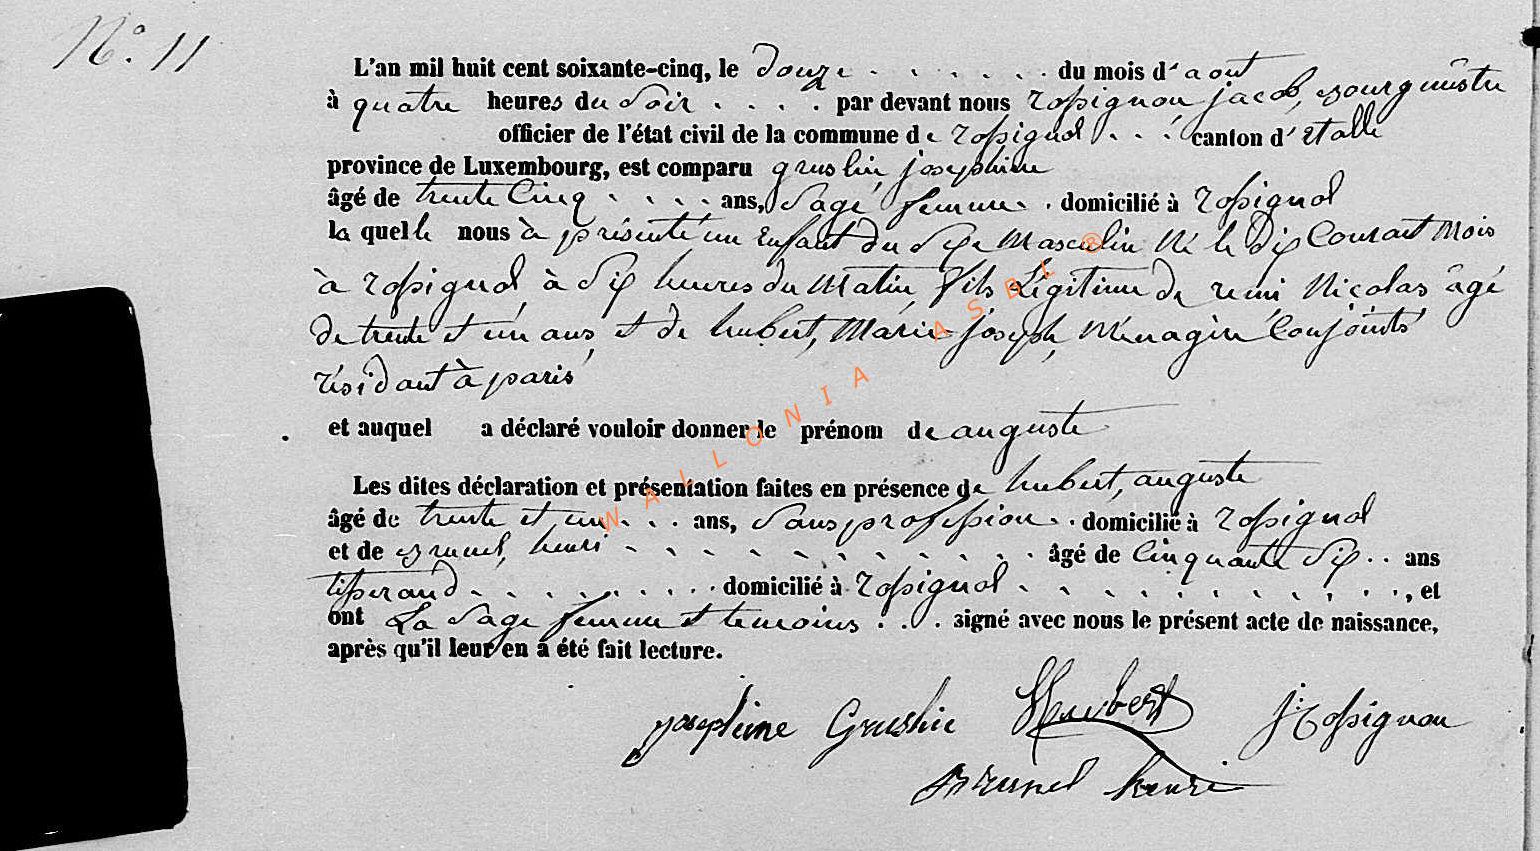 N.º 11
L'an mil huit cent soixante-cinq, le douze . . . . . . du mois d'aout
à quatre heures du Soir . . . . par devant nous rossignon jacob, bourgmestre
officier de l'état civil de la commune de rossignol . . . canton d'Etalle
province de Luxembourg, est comparu gruslin, joséphine
âgé de trente Cinq . . . . ans, Sage femme . . domicilié à rossignol
la quelle nous à présenté un Enfant du Sexe Masculin Né le dix Courant Mois
à rossignol, à Six heures du Matin, fils Légitime de remi Nicolas âgé
de trente et un ans, et de hubert, Marie-joseph, Ménagère Conjoints
résidant à paris
et auquel a déclaré vouloir donner le prénom de auguste
Les dites déclaration et présentation faites en présence de hubert, auguste
âgé de trente et un . . . ans, Sans profession . . domicilié à rossignol
et de brunel, henri . . . . . . . . . . . . âgé de Cinquante Six . . ans
tisserand . . . . . . . . . domicilié à rossignol . . . . . . . . . . . , et
ont La Sage femme et temoins . . . signé avec nous le présent acte de naissance,
après qu'il leur en a été fait lecture.
joséphine Gruslin Hubert J Rossignon
Brunel henri
WALLONIA ASBL ®